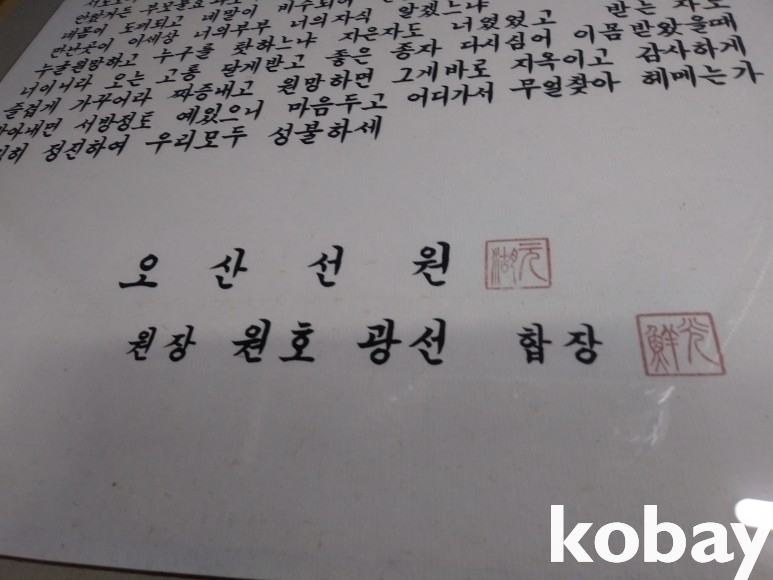 내몸이 도며되고 네말이 비수되어
만난곳이 이세상 너의부부 너의자식 알겠느냐 받는 자도
누굴원망하고 누구를 탓하느냐 지은자도 너였었고 이몸 받았을때
너이니라 오는 고통 달게받고 좋은 종자 다시심어 감사하게
즐겁게 가꾸어라 짜증내고 원망하면 그게바로 지옥이고
아내면 서방정토 예있으니 마음두고 어디가서 무얼찾아 헤메는가
히 정진하여 우리모두 성불하세
오산선원 元湖
원장 원호 광선 합장 光鮮
kobay